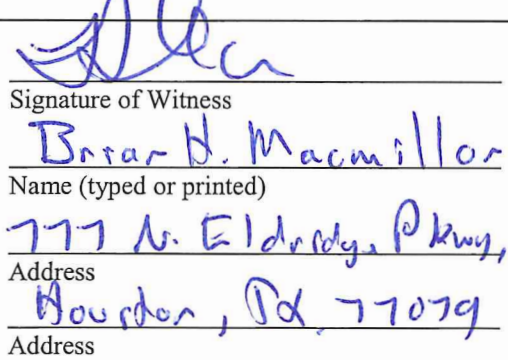 Signature of Witness
Brian H. Macmillan
Name (typed or printed)
777 N. Eldridge Pkwy,
Address
Houston, TX 77079
Address